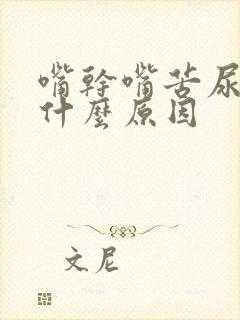 嘴幹嘴苦尿
什麼原因
文尼